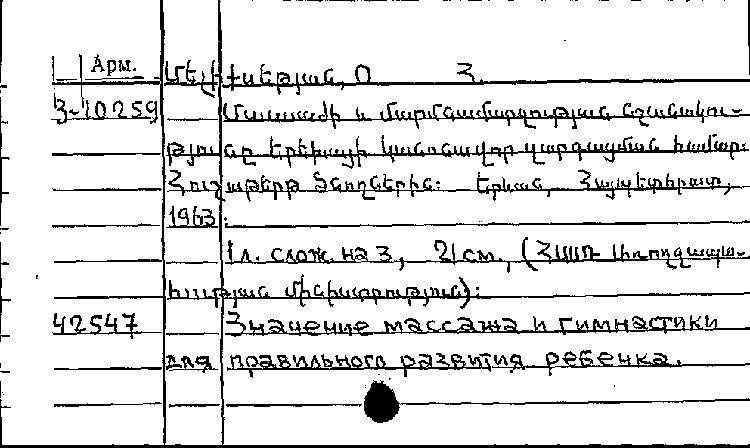 Арм.
Մելիքսեթյան, Օ Հ.
3-10259 Մասսաժի և մարմնամարզության նշանակու-
թյունը երեխայի կանոնավոր զարգացման համար:
Հուշաթերթ ծնողներին: Երևան, Հայպետհրատ,
1963.
1 л. слож. на 3, 21 см., (ՀՍՍՌ Առողջապա-
հության մինիստրություն):
42547 Значение массажа и гимнастики
для правильного развития ребенка.